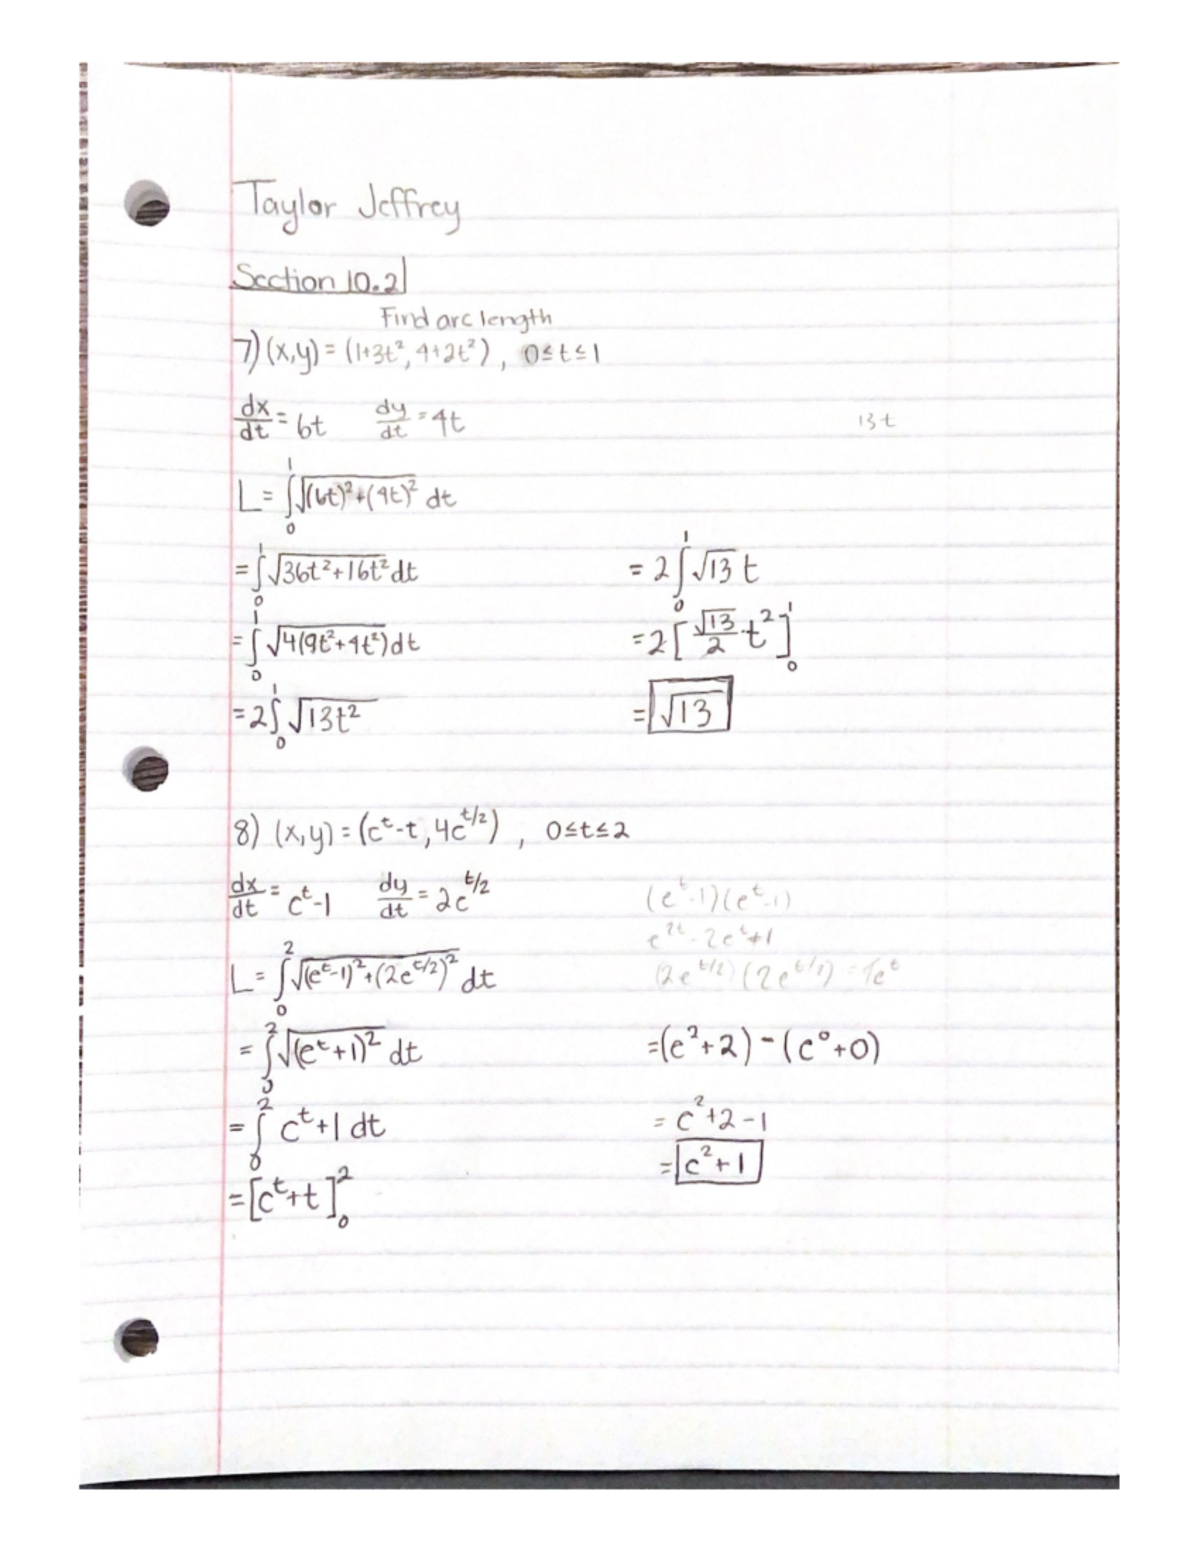 Taylor Jeffrey
Section 10.2
Find arc length
7) (x,y) = (1+3t², 4+2t²) , 0≤t≤1
dx/dt = 6t dy/dt = 4t
13t
L = ∫₀¹ √((6t)²+(4t)²) dt
= ∫₀¹ √(36t²+16t²) dt
= ∫₀¹ √(4(9t²+4t²)) dt
= 2∫₀¹ √(13t²)
= 2∫₀¹ √13 t
= 2[√13/2 t²]₀¹
= √13
8) (x,y) = (e^t-t, 4e^(t/2)) , 0≤t≤2
dx/dt = e^t-1 dy/dt = 2e^(t/2)
L = ∫₀² √((e^t-1)²+(2e^(t/2))²) dt
= ∫₀² √((e^t+1)²) dt
= ∫₀² e^t+1 dt
= [e^t+t]₀²
(e^t-1)(e^t-1)
e^(2t)-2e^t+1
(2e^(t/2))(2e^(t/2)) = 4e^t
=(e²+2)-(e⁰+0)
= e²+2-1
= e²+1